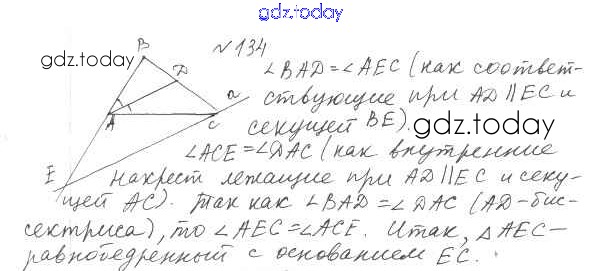 gdz.today
№134
gdz.today
B
D
a
A
C
E
∠BAD=∠AEC (как соответ-
ствующие при AD∥EC и
секущей BE).
gdz.today
∠ACE=∠DAC (как внутренние
накрест лежащие при AD∥EC и секу-
щей AC). Так как ∠BAD=∠DAC (AD-бис-
сектриса), то ∠AEC=∠ACE. Итак, △AEC-
равнобедренный с основанием EC.